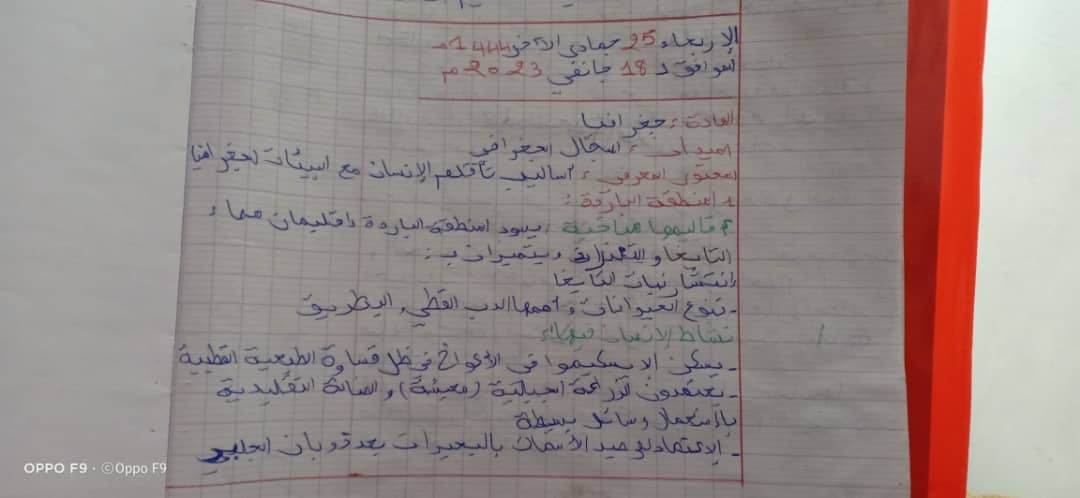 الإربعاء 25 جمادى الآخر 1444هـ
الموافق لـ 18 جانفي 2023م
المادة: جغرافيا
الميدان: المجال الجغرافي
المحتوى المعرفي: أساليب تأقلم الإنسان مع البيئات الجغرافيا
1 المنطقة الباردة:
أقاليمها مناخية: يسود المنطقة الباردة إقليمان هما:
التايغا والتندرا ويتميزان بـ:
إنتشار نبات التايغا
- تنوع الحيوانات أهمها الدب القطبي، البطريق
نشاط الإنسان فيها:
- يسكن الإسكيموا في الأكواخ في ظل قساوة الطبيعية القطبية
- يعتمدون لزراعة الجبالية (معيشة) و التقليدية
باستعمال وسائل بسيطة
- الإعتماد لصيد الأسماك بالبحيرات بعد ذوبان الجليد
OPPO F9 · ©Oppo F9